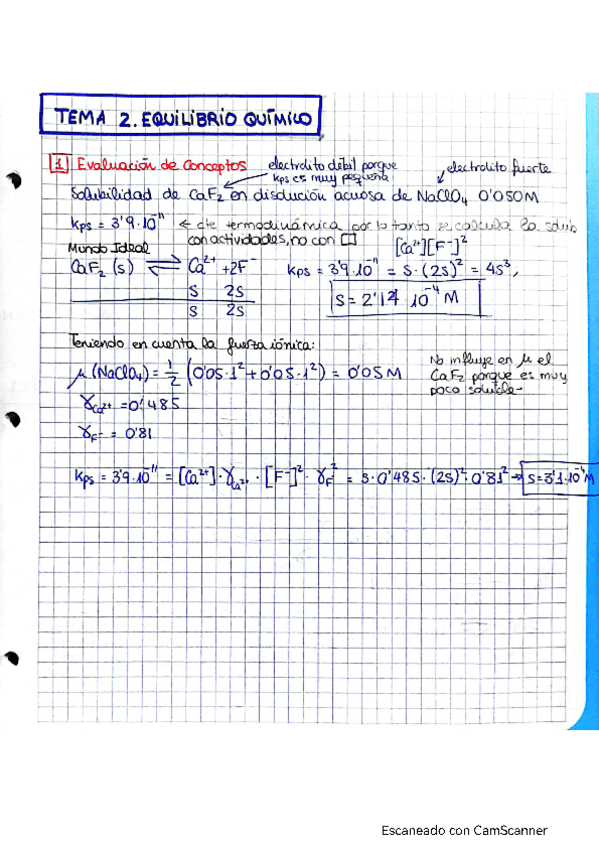 TEMA 2. EQUILIBRIO QUÍMICO
1 Evaluación de Conceptos
electrolito débil porque
kps es muy pequeña
electrolito fuerte
Solubilidad de CaF₂ en disolución acuosa de NaClO₄ 0'050M
Kps = 3'9·10⁻¹¹ ← cte termodinámica por lo tanto se calcula la solub
con actividades, no con []
Mundo Ideal
[Ca²⁺][F⁻]²
CaF₂ (s) ⇌ Ca²⁺ + 2F⁻
Kps = 3'9·10⁻¹¹ = S·(2S)² = 4S³,
S 2S
S 2S
S = 2'14 10⁻⁴ M
Teniendo en cuenta la fuerza iónica:
μ(NaClO₄) = 1/2 (0'05·1² + 0'05·1²) = 0'05M
No influye en μ el
CaF₂ porque es muy
poco soluble.
γCa²⁺ = 0'485
γF⁻ = 0'81
Kps = 3'9·10⁻¹¹ = [Ca²⁺]·γCa²⁺·[F⁻]²·γF⁻² = S·0'485·(2S)²·0'81² → S = 3'1·10⁻⁴ M
Escaneado con CamScanner